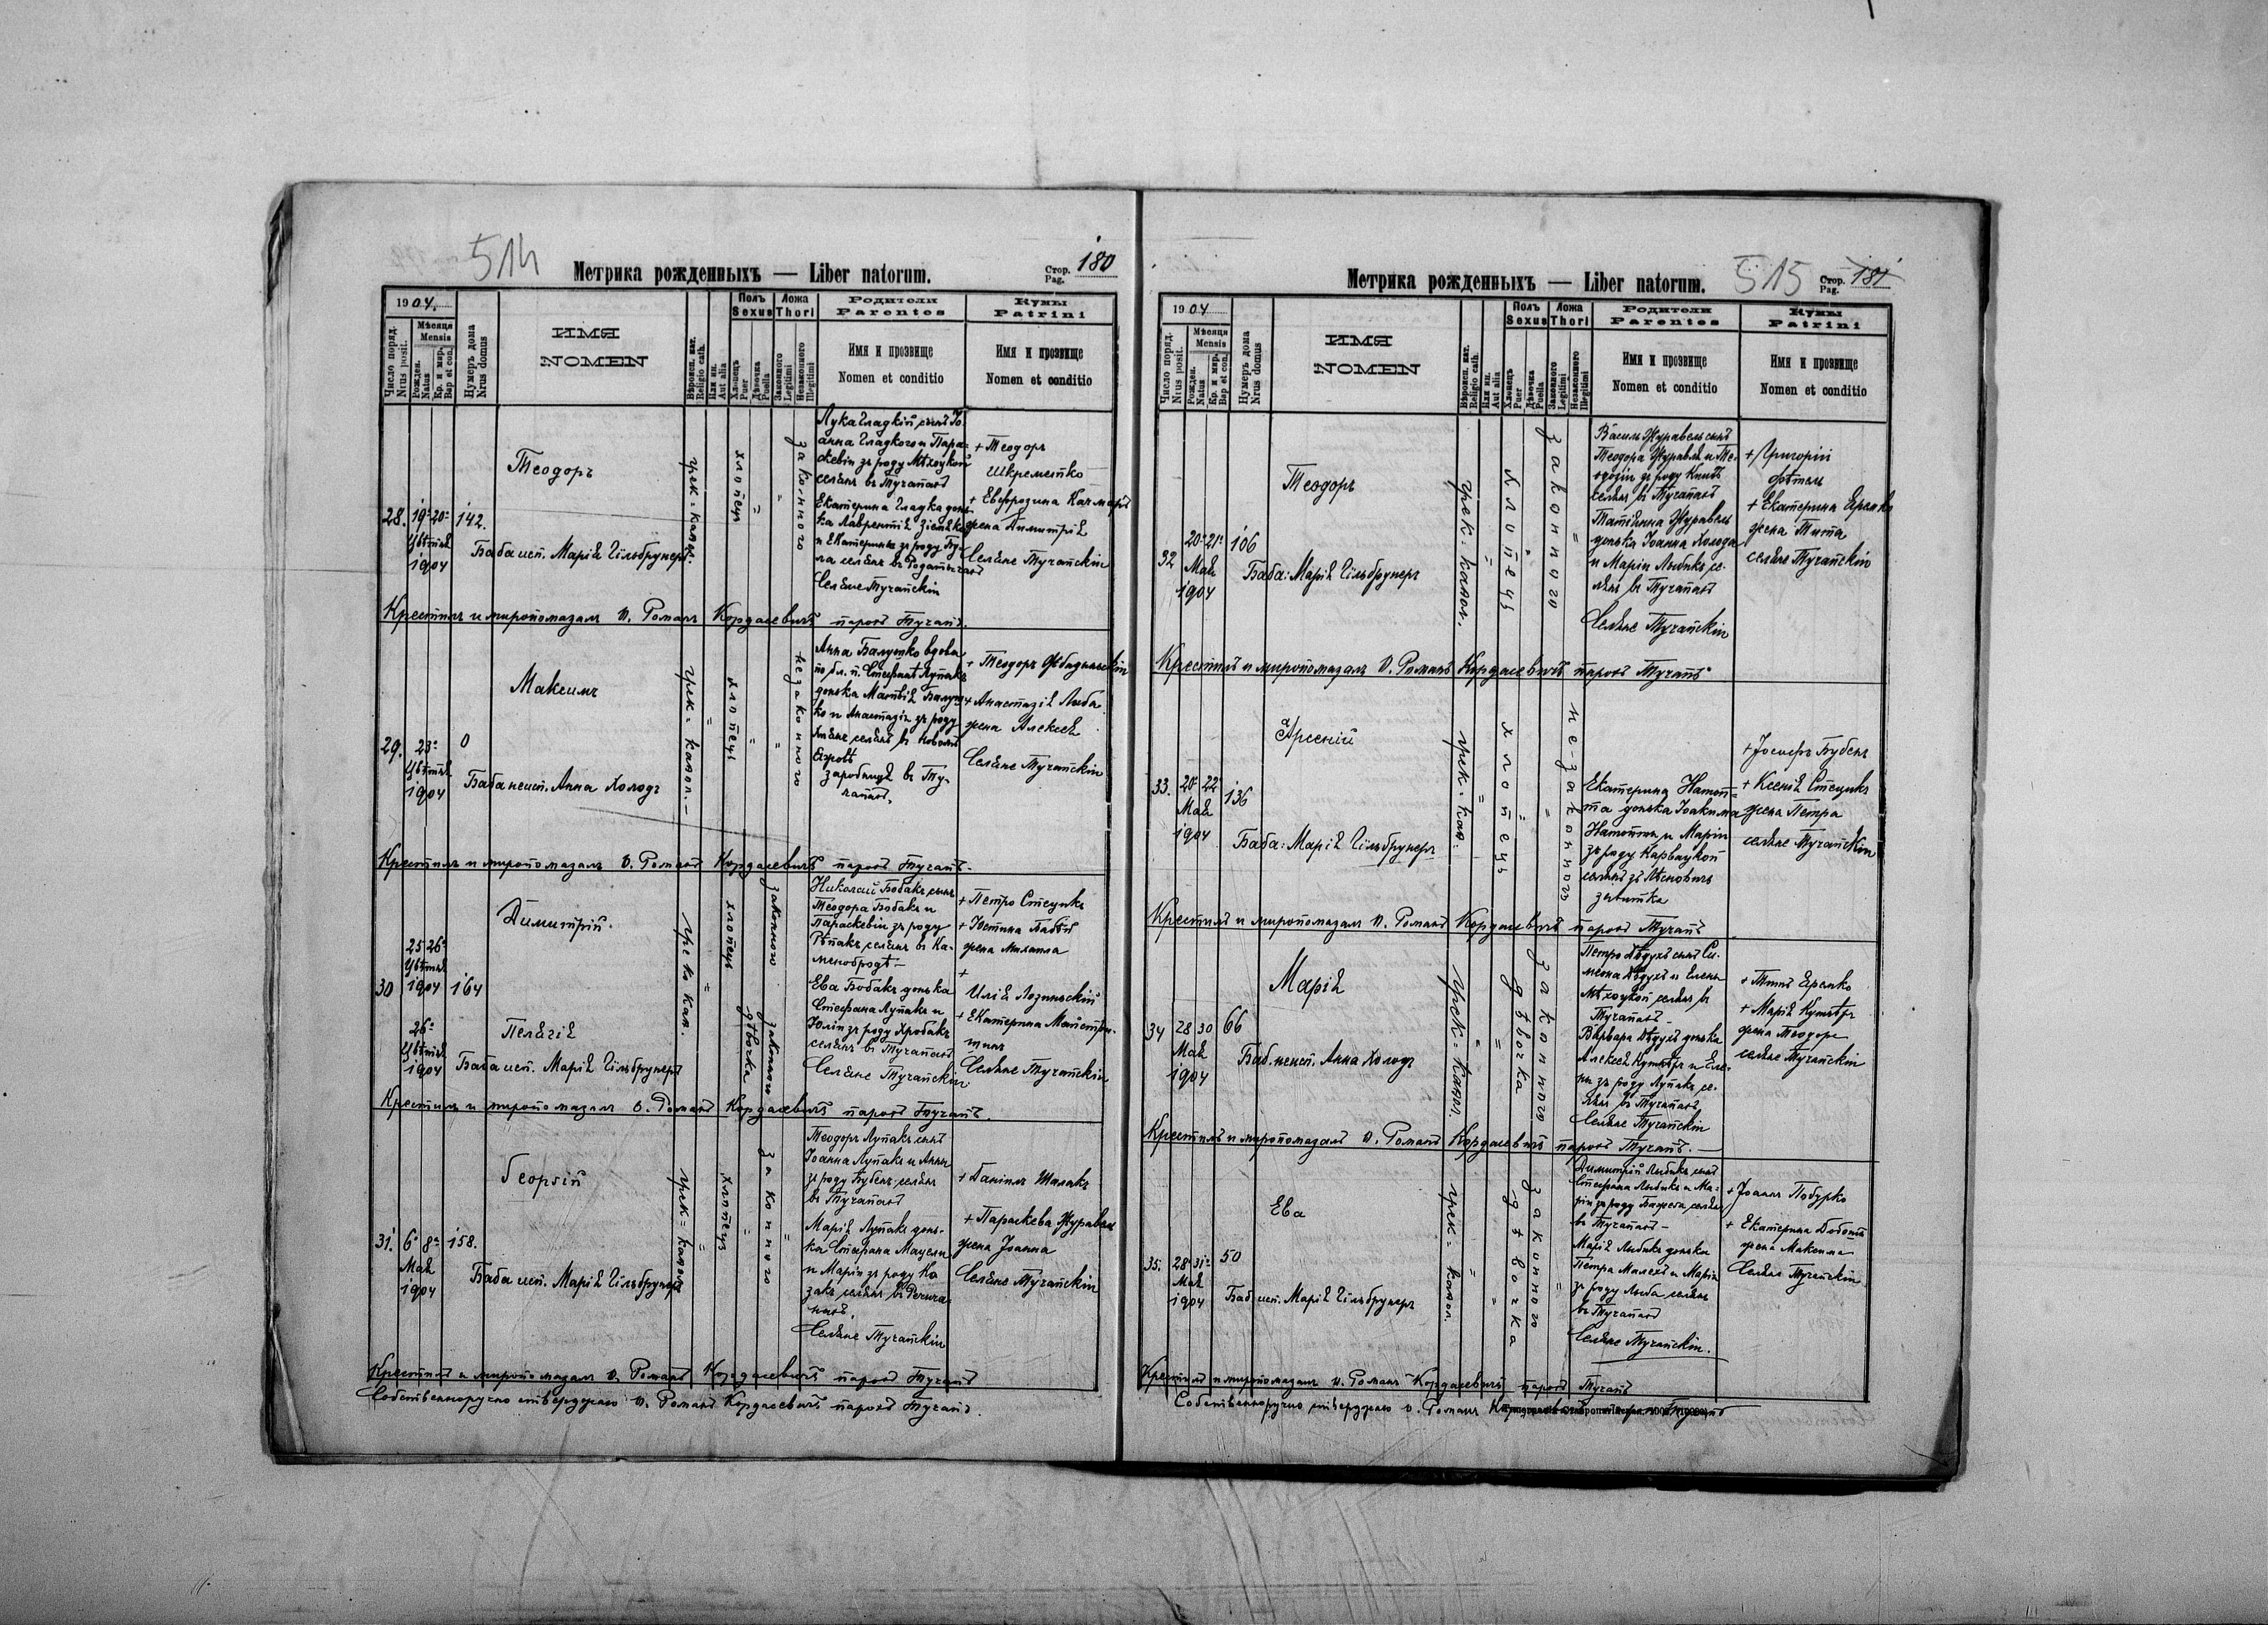 514
Метрика рожденныхъ — Liber natorum.
Стор. Pag. 180
19 04.
Число поряд. Nrus posit.
Мѣсяця Mensis
Рожден. Natus
Кр. и мир. Bap et con.
Нумеръ дома Nrus domus
ИМЯ
NOMEN
Вѣроисп. кат. Religio cath.
Или ин. Aut alia
Полъ Sexus
Хлопецъ Puer
Дѣвочка Puella
Ложа Thori
Законного Legitimi
Незаконного Illegitimi
Родители
Parentes
Имя и прозвище
Nomen et conditio
Кумы
Patrini
Имя и прозвище
Nomen et conditio
28. 19 20 142.
Цвѣтня
1904
Теодоръ
Баба исп. Марія Гільбрунеръ
грек. катол.
хлопецъ
законного
Лука Гладкій, сынъ Іо-
анна Гладкого и Пара-
скевіи зъ роду
селянъ въ Тучапахъ
Екатерина Гладка донь-
ка Лаврентія
и Екатерины зъ роду
селянъ въ
Селяне Тучапскіи
+ Теодоръ
Шкреметко
+ Евфрозина Качмаръ
жена Димитрія
Селяне Тучапскіи
Крестилъ и миропомазалъ о. Романъ Кордасевичъ парохъ Тучапъ.
29. 23 0
Цвѣтня
1904
Максимъ
Баба неисп. Анна Холодъ
грек. катол.
хлопецъ
незаконного
Анна Балушко вдова
по бл. п. Стефанѣ Лупакъ
донька Матвія Балуш-
ко и Анастазіи зъ роду
селянъ въ
заробниця въ Ту-
чапахъ.
+ Теодоръ
+ Анастазія Лыба
жена Алексея
Селяне Тучапскіи
Крестилъ и миропомазалъ о. Романъ Кордасевичъ парохъ Тучапъ.
30 25 26 164
Цвѣтня
1904
Димитрій.
26
Цвѣтня
1904
Пелагія
Баба исп. Марія Гільбрунеръ
греко кат.
хлопецъ
дѣвочка
законного
законного
Николай Бобакъ, сынъ
Теодора Бобакъ и
Параскевіи зъ роду
Рѣпакъ, селянъ въ Ка-
менобродѣ —
Ева Бобакъ донька
Стефана Лупакъ и
Юліи зъ роду Хробакъ
селянъ въ Тучапахъ
Селяне Тучапскіи
+ Петро Стецикъ
+ Юстина Бабѣй
жена Михаила
+
Илія Лозиньскій
+ Екатерина
Селяне Тучапскіи
Крестилъ и миропомазалъ о. Романъ Кордасевичъ парохъ Тучапъ.
31. 6 8 158.
Мая
1904
Георгій
Баба исп. Марія Гільбрунеръ
грек. катол.
хлопецъ
законного
Теодоръ Лупакъ, сынъ
Іоанна Лупакъ и Анны
зъ роду Бубенъ, селянъ
въ Тучапахъ
Марія Лупакъ донь-
ка Стефана Мацели
и Маріи зъ роду Ко
закъ, селянъ въ Речича-
нахъ
Селяне Тучапскіи
+ Даніилъ Шалакъ
+ Параскева Журавель
жена Іоанна
Селяне Тучапскіи
Крестилъ и миропомазалъ о. Романъ Кордасевичъ парохъ Тучапъ
Собственноручно стверджаю о. Романъ Кордасевичъ парохъ Тучапъ.
Метрика рожденныхъ — Liber natorum.
515
Стор. Pag. 181
19 04
Число поряд. Nrus posit.
Мѣсяця Mensis
Рожден. Natus
Кр. и мир. Bap et con.
Нумеръ дома Nrus domus
ИМЯ
NOMEN
Вѣроисп. кат. Religio cath.
Или ин. Aut alia
Полъ Sexus
Хлопецъ Puer
Дѣвочка Puella
Ложа Thori
Законного Legitimi
Незаконного Illegitimi
Родители
Parentes
Имя и прозвище
Nomen et conditio
Кумы
Patrini
Имя и прозвище
Nomen et conditio
32 20 21 106
Мая
1904
Теодоръ
Баба: Марія Гільбрунеръ
грек. катол.
хлопецъ
законного
Василь Журавель сынъ
Теодора Журавля и Те-
одозіи зъ роду
селянъ въ Тучапахъ
Татіянна Журавель
донька Іоанна Холода
и Маріи Лыбикъ, се-
лянъ въ Тучапахъ
Селяне Тучапскіи
+ Григорій
+ Екатерина Яремко
жена Тита
селяне Тучапскіи
Крестилъ и миропомазалъ о. Романъ Кордасевичъ парохъ Тучапъ.
33. 20 22 136
Мая
1904
Арсеній
Баба: Марія Гільбрунеръ
грек. кат.
хлопецъ
не-законного
Екатерина
донька Іоакима
и Маріи
зъ роду
селянъ зъ
+ Іосифъ Бубенъ
+ Ксенія Стецикъ
жена Петра
селяне Тучапскіи
Крестилъ и миропомазалъ о. Романъ Кордасевичъ парохъ Тучапъ
34 28 30 66
Мая
1904
Марія
Баб. неисп. Анна Холодъ
грек. катол.
дѣвочка
законного
Петро Дѣдухъ сынъ Си-
меона Дѣдухъ и Елены
селянъ въ
Тучапахъ —
Варвара Дѣдухъ донька
Алексея и Еле-
ны зъ роду Лупакъ, се-
лянъ въ Тучапахъ
Селяне Тучапскіи
+ Титъ Яремко
+ Марія
жена Теодора
селяне Тучапскіи
Крестилъ и миропомазалъ о. Романъ Кордасевичъ парохъ Тучапъ. —
35. 28 31 50
Мая
1904
Ева
Баб. исп. Марія Гільбрунеръ
грек. катол.
дѣвочка
законного
Димитрій Лыбикъ, сынъ
Стефана Лыбикъ и Ма-
ріи зъ роду селянъ
въ Тучапахъ —
Марія Лыбикъ донька
Петра Малехъ и Маріи
зъ роду Лыба селянъ
въ Тучапахъ
Селяне Тучапскіи.
+ Іоаннъ Побурко
+ Екатерина
жена Максима
Селяне Тучапскіи
Крестилъ и миропомазалъ о. Романъ Кордасевичъ парохъ Тучапъ
Собственноручно стверджаю о. Романъ